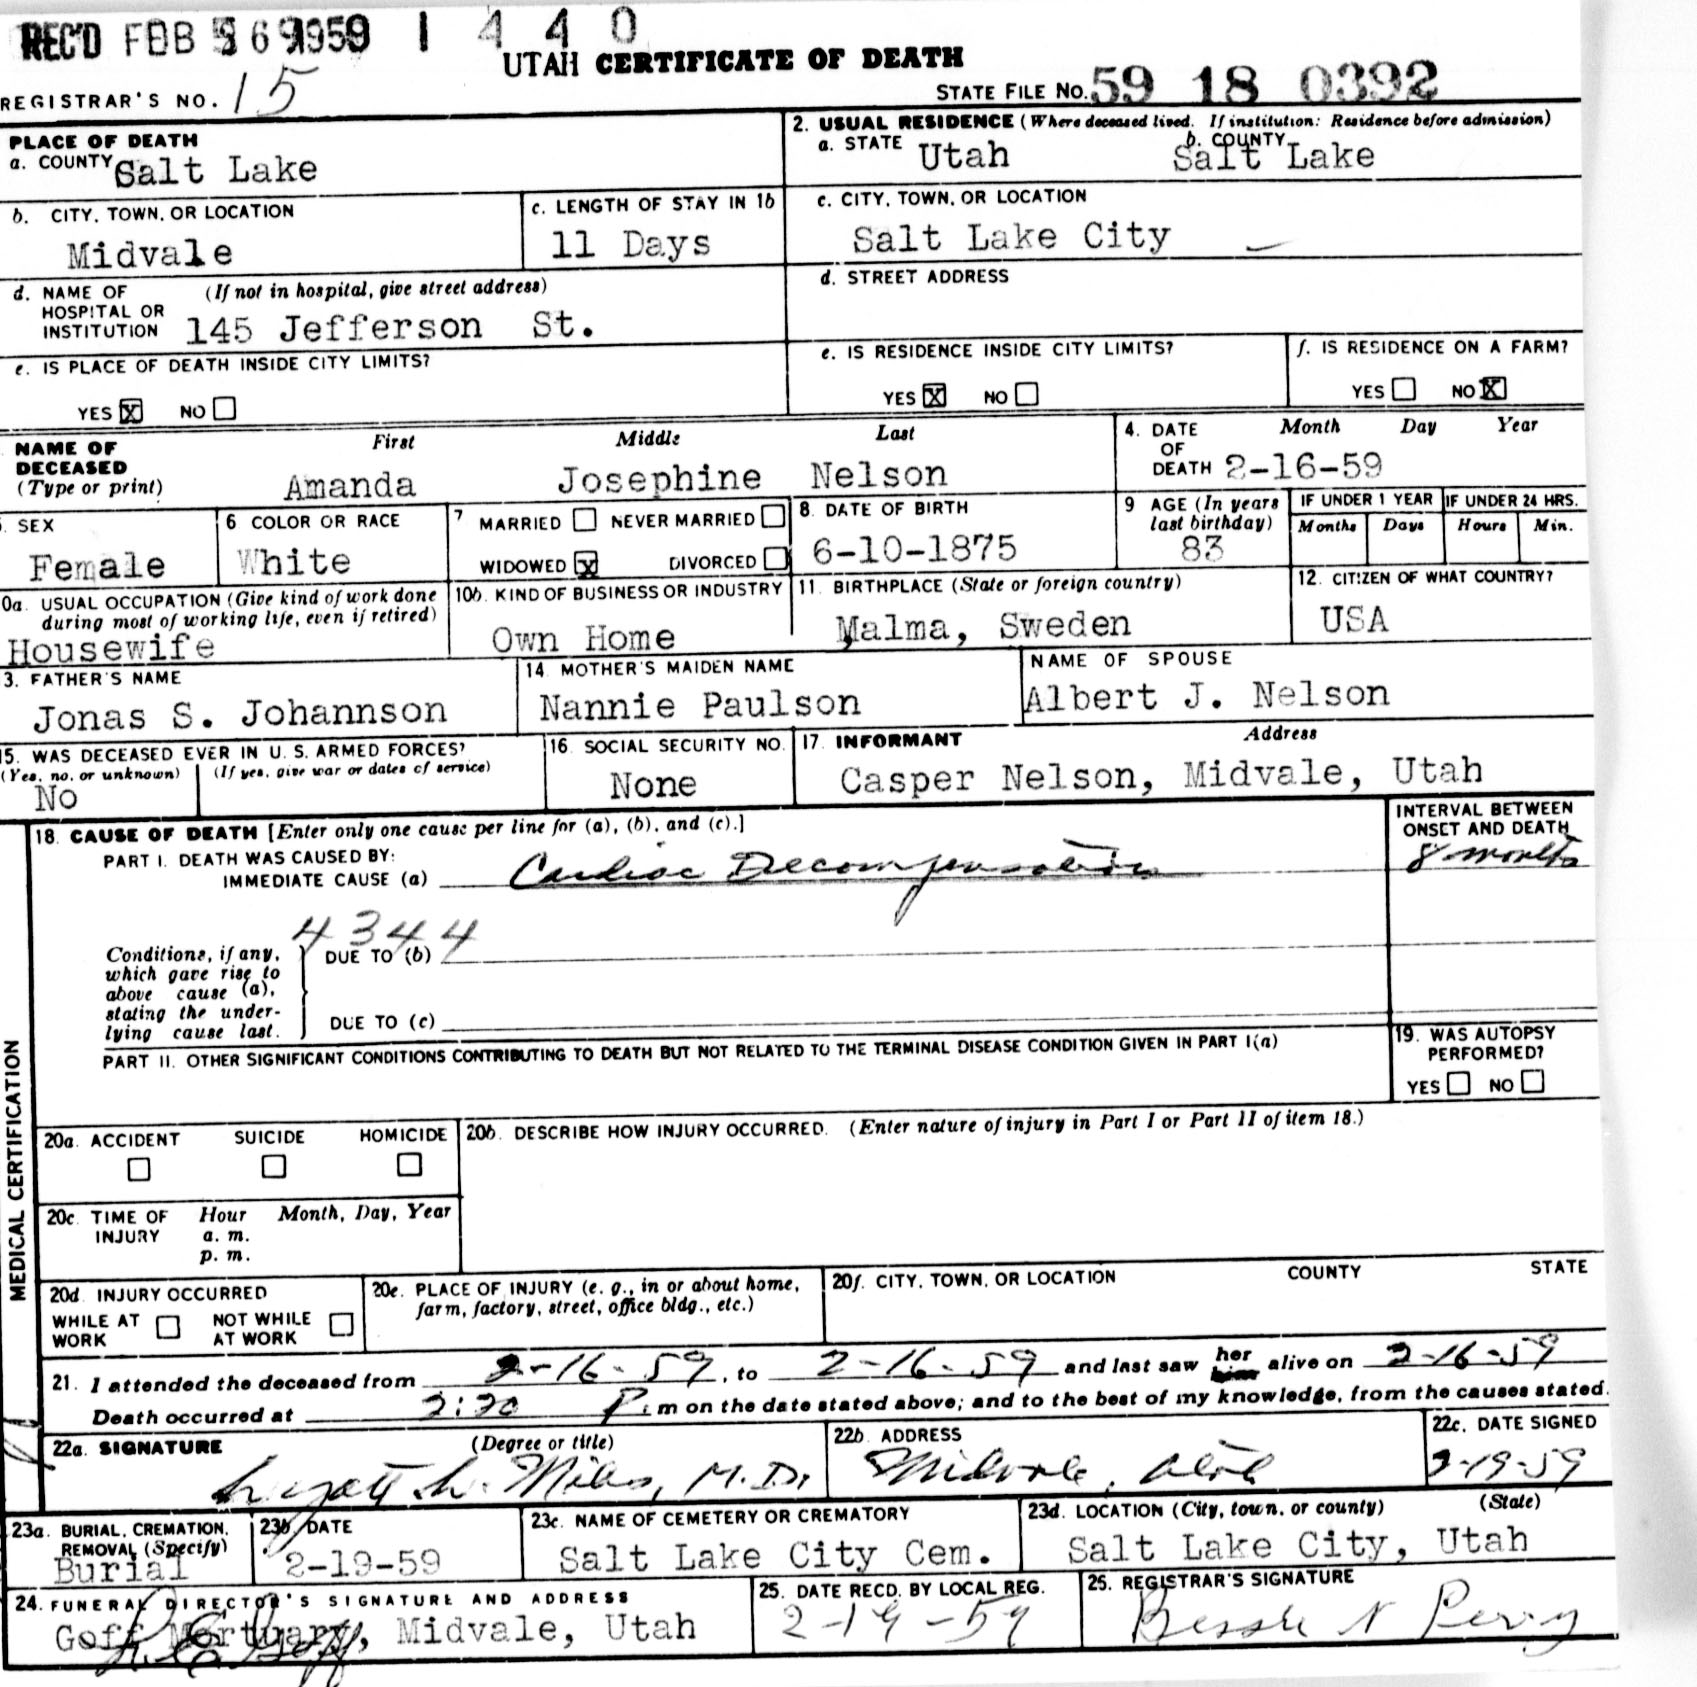 REC'D FEB 1959 1 4 4 0
UTAH CERTIFICATE OF DEATH
REGISTRAR'S NO. 15
STATE FILE NO. 59 18 0392
PLACE OF DEATH
a. COUNTY Salt Lake
2. USUAL RESIDENCE (Where deceased lived. If institution: Residence before admission)
a. STATE Utah b. COUNTY Salt Lake
b. CITY, TOWN, OR LOCATION
Midvale
c. LENGTH OF STAY IN 1b
11 Days
c. CITY, TOWN, OR LOCATION
Salt Lake City
d. NAME OF HOSPITAL OR INSTITUTION (If not in hospital, give street address)
145 Jefferson St.
d. STREET ADDRESS
e. IS PLACE OF DEATH INSIDE CITY LIMITS?
YES X NO
e. IS RESIDENCE INSIDE CITY LIMITS?
YES X NO
f. IS RESIDENCE ON A FARM?
YES NO X
NAME OF DECEASED (Type or print)
First Middle Last
Amanda Josephine Nelson
4. DATE OF DEATH Month Day Year
2-16-59
5. SEX
Female
6 COLOR OR RACE
White
7 MARRIED NEVER MARRIED
WIDOWED X DIVORCED
8. DATE OF BIRTH
6-10-1875
9 AGE (In years last birthday)
83
IF UNDER 1 YEAR
Months Days
IF UNDER 24 HRS.
Hours Min.
0a. USUAL OCCUPATION (Give kind of work done during most of working life, even if retired)
Housewife
10b. KIND OF BUSINESS OR INDUSTRY
Own Home
11. BIRTHPLACE (State or foreign country)
Malma, Sweden
12. CITIZEN OF WHAT COUNTRY?
USA
3. FATHER'S NAME
Jonas S. Johannson
14. MOTHER'S MAIDEN NAME
Nannie Paulson
NAME OF SPOUSE
Albert J. Nelson
15. WAS DECEASED EVER IN U. S. ARMED FORCES?
(Yes, no, or unknown) (If yes, give war or dates of service)
No
16. SOCIAL SECURITY NO.
None
17. INFORMANT Address
Casper Nelson, Midvale, Utah
MEDICAL CERTIFICATION
18. CAUSE OF DEATH [Enter only one cause per line for (a), (b), and (c).]
INTERVAL BETWEEN ONSET AND DEATH
PART I. DEATH WAS CAUSED BY:
IMMEDIATE CAUSE (a) Cardiac Decompensation
8 months
4344
Conditions, if any, which gave rise to above cause (a), stating the underlying cause last.
DUE TO (b)
DUE TO (c)
PART II. OTHER SIGNIFICANT CONDITIONS CONTRIBUTING TO DEATH BUT NOT RELATED TO THE TERMINAL DISEASE CONDITION GIVEN IN PART I(a)
19. WAS AUTOPSY PERFORMED?
YES NO
20a. ACCIDENT SUICIDE HOMICIDE
20b. DESCRIBE HOW INJURY OCCURRED. (Enter nature of injury in Part I or Part II of item 18.)
20c. TIME OF INJURY Hour Month, Day, Year
a. m.
p. m.
20d INJURY OCCURRED
WHILE AT WORK NOT WHILE AT WORK
20e. PLACE OF INJURY (e. g., in or about home, farm, factory, street, office bldg., etc.)
20f. CITY, TOWN, OR LOCATION COUNTY STATE
21. I attended the deceased from 2-16-59, to 2-16-59 and last saw her him alive on 2-16-59
Death occurred at 2:20 P. m on the date stated above; and to the best of my knowledge, from the causes stated.
22a. SIGNATURE (Degree or title)
Miles, M.D.
22b ADDRESS
Midvale, Utah
22c. DATE SIGNED
2-19-59
23a. BURIAL, CREMATION, REMOVAL (Specify)
Burial
23b DATE
2-19-59
23c. NAME OF CEMETERY OR CREMATORY
Salt Lake City Cem.
23d. LOCATION (City, town, or county) (State)
Salt Lake City, Utah
24. FUNERAL DIRECTOR'S SIGNATURE AND ADDRESS
Goff Mortuary, Midvale, Utah
25. DATE RECD. BY LOCAL REG.
2-19-59
25. REGISTRAR'S SIGNATURE
Bessie N Perry